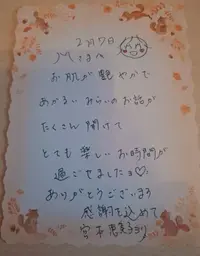 2月7日
さまへ
お肌が艶やかで
あかるいみらいのお話が
たくさん聞けて
とても楽しいお時間が
過ごせましたヨ♡
ありがとうございます
感謝を込めて
恵美子より